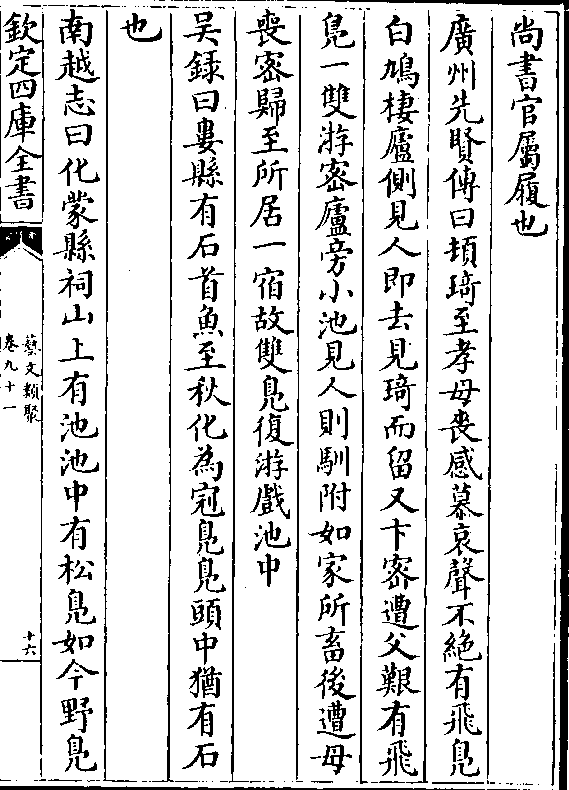 尚書官屬履也
廣州先賢傳曰頓琦至孝母喪感慕哀聲不絶有飛鳧
白鳩棲廬側見人即去見琦而留又卞宻遭父艱有飛
鳧一雙游宻廬旁小池見人則馴附如家所畜後遭母
喪宻歸至所居一宿故雙鳧復游戲池中
吴録曰婁縣有石首魚至秋化為㓂鳧鳧頭中猶有石
也
南越志曰化蒙縣祠山上有池池中有松鳧如今野鳧
欽定四庫全書
藝文類聚
卷九十一
十六